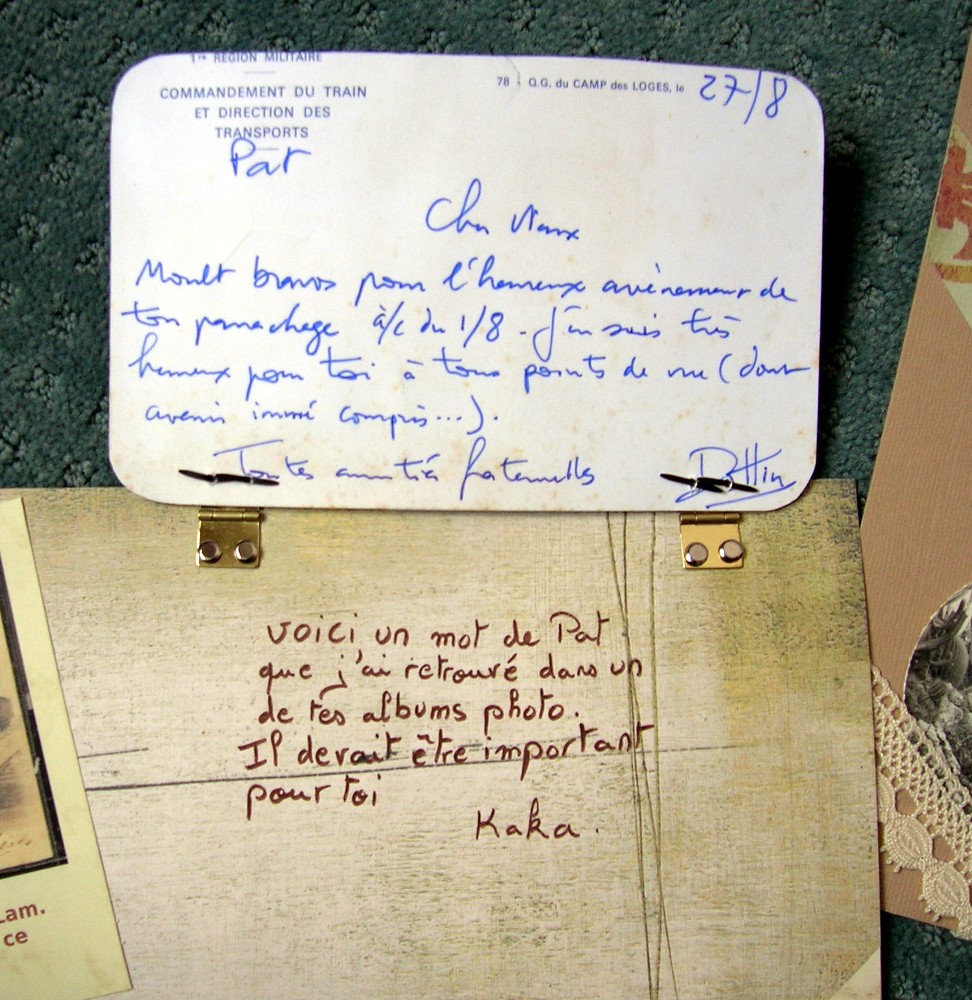 1re RÉGION MILITAIRE
COMMANDEMENT DU TRAIN
ET DIRECTION DES
TRANSPORTS
78 - Q.G. du CAMP des LOGES, le 27/8
Pat
Cher Vieux
Moult bravos pour l'heureux avènement de
ton panachage à/c du 1/8 - J'en suis très
heureux pour toi à tous points de vue (dont
avenir immé compris...).
Toutes amitiés fraternelles
voici un mot de Pat
que j'ai retrouvé dans un
de tes albums photo.
Il devait être important
pour toi
Kaka.
Lam.
ce